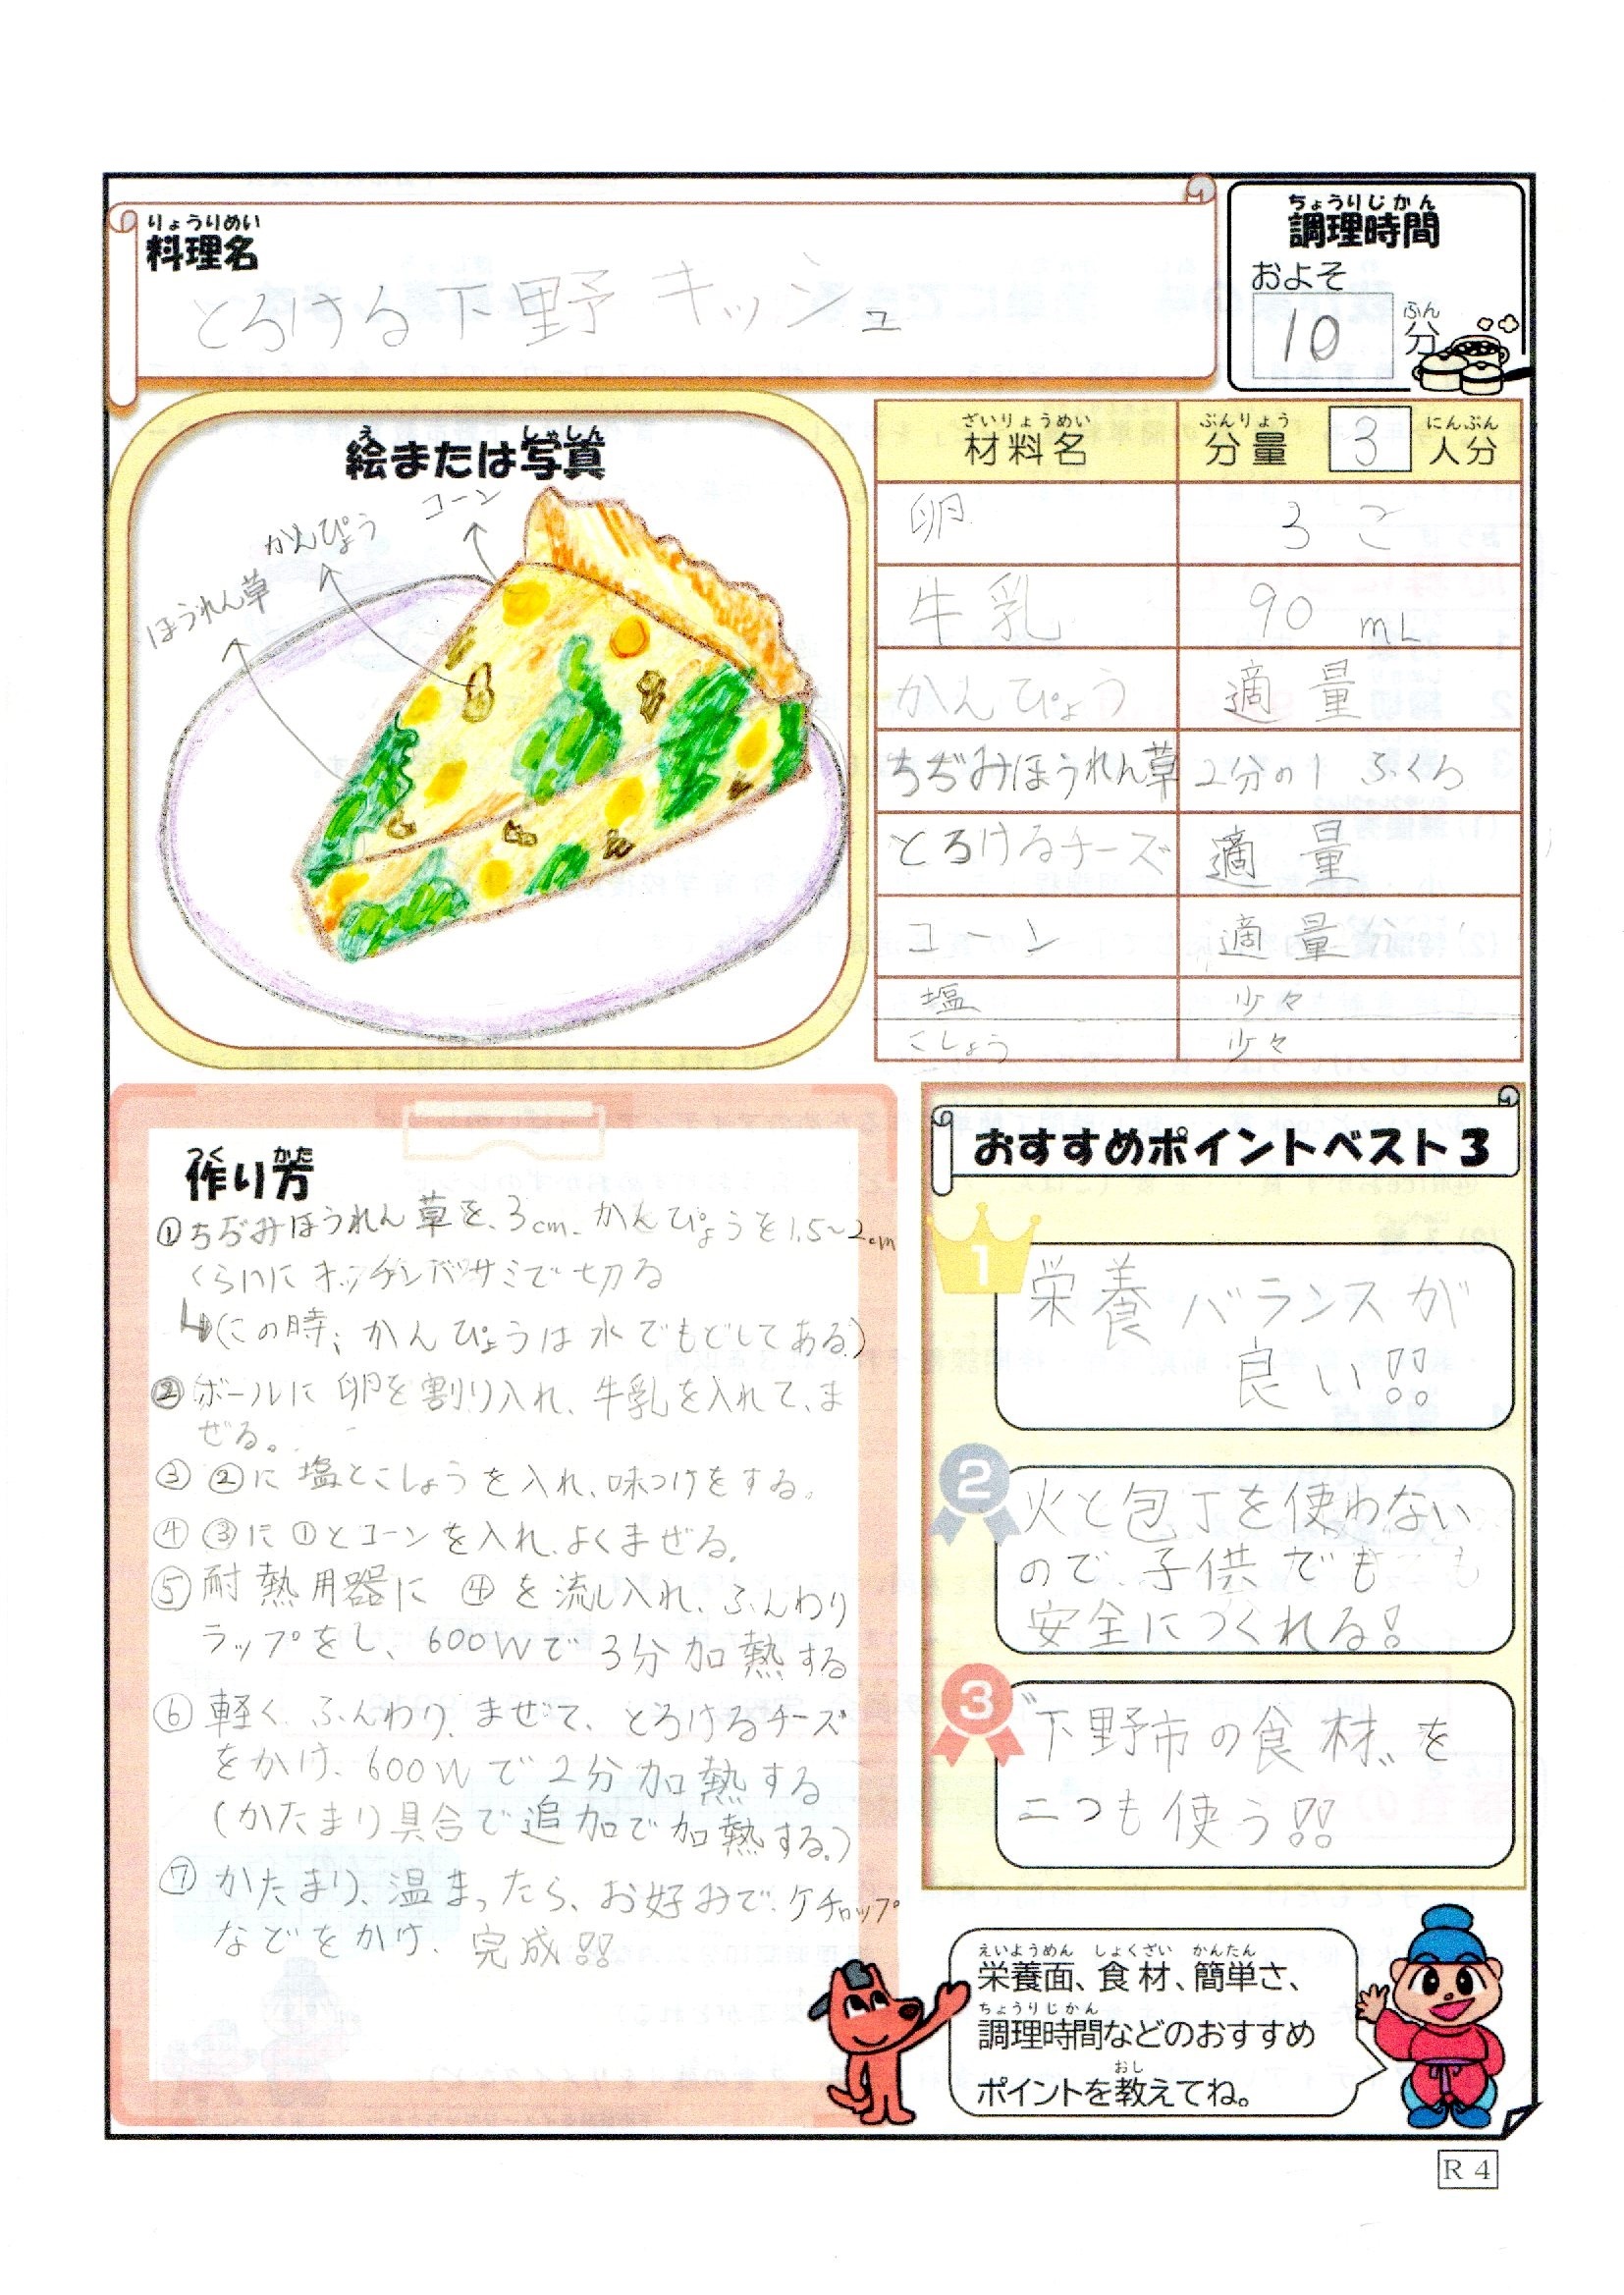 りょうりめい
料理名
とろける下野キッシュ
ちょうりじかん
調理時間
およそ
10
ふん
分
え しゃしん
絵または写真
コーン
かんぴょう
ほうれん草
ざいりょうめい ぶんりょう にんぶん
材料名 分量 3 人分
卵 3こ
牛乳 90mL
かんぴょう 適量
ちぢみほうれん草 2分の1 ふくろ
とろけるチーズ 適量
コーン 適量
塩 少々
こしょう 少々
つく かた
作り方
①ちぢみほうれん草を、3cm、かんぴょうを1.5~2cm
くらいにキッチンバサミで切る
↳(この時、かんぴょうは水でもどしてある)
②ボールに卵を割り入れ、牛乳を入れて、ま
ぜる。
③②に塩とこしょうを入れ、味つけをする。
④③に①とコーンを入れ、よくまぜる。
⑤耐熱用器に④を流し入れ、ふんわり
ラップをし、600Wで3分加熱する
⑥軽く、ふんわり、まぜて、とろけるチーズ
をかけ、600Wで2分加熱する
(かたまり具合で追加で加熱する。)
⑦かたまり、温まったら、お好みで、ケチャップ
などをかけ、完成!!
おすすめポイントベスト3
1
栄養バランスが
良い!!
2
火と包丁を使わない
ので、子供でも
安全につくれる!
3
"下野市の食材"を
二つも使う!!
えいようめん しょくざい かんたん
栄養面、食材、簡単さ、
ちょうりじかん
調理時間などのおすすめ
おし
ポイントを教えてね。
R4